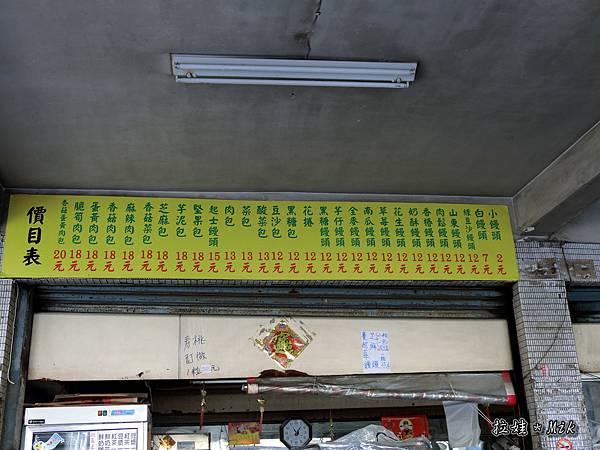 價目表
香菇蛋黃肉包 20元
脆筍肉包 18元
蛋黃肉包 18元
香菇肉包 18元
麻辣肉包 18元
香菇菜包 18元
芝麻包 18元
芋泥包 18元
堅果包 18元
起士饅頭 15元
肉包 13元
菜包 13元
酸菜包 13元
豆沙包 12元
黑糖包 12元
花捲 12元
黑糖饅頭 12元
芋仔饅頭 12元
全麥饅頭 12元
南瓜饅頭 12元
草莓饅頭 12元
花生饅頭 12元
奶酥饅頭 12元
香椿饅頭 12元
肉鬆饅頭 12元
山東饅頭 12元
綠豆沙饅頭 12元
白饅頭 7元
小饅頭 2元
壽桃
訂做
紅茶
豆漿
鮮奶
拉娃☆MZK